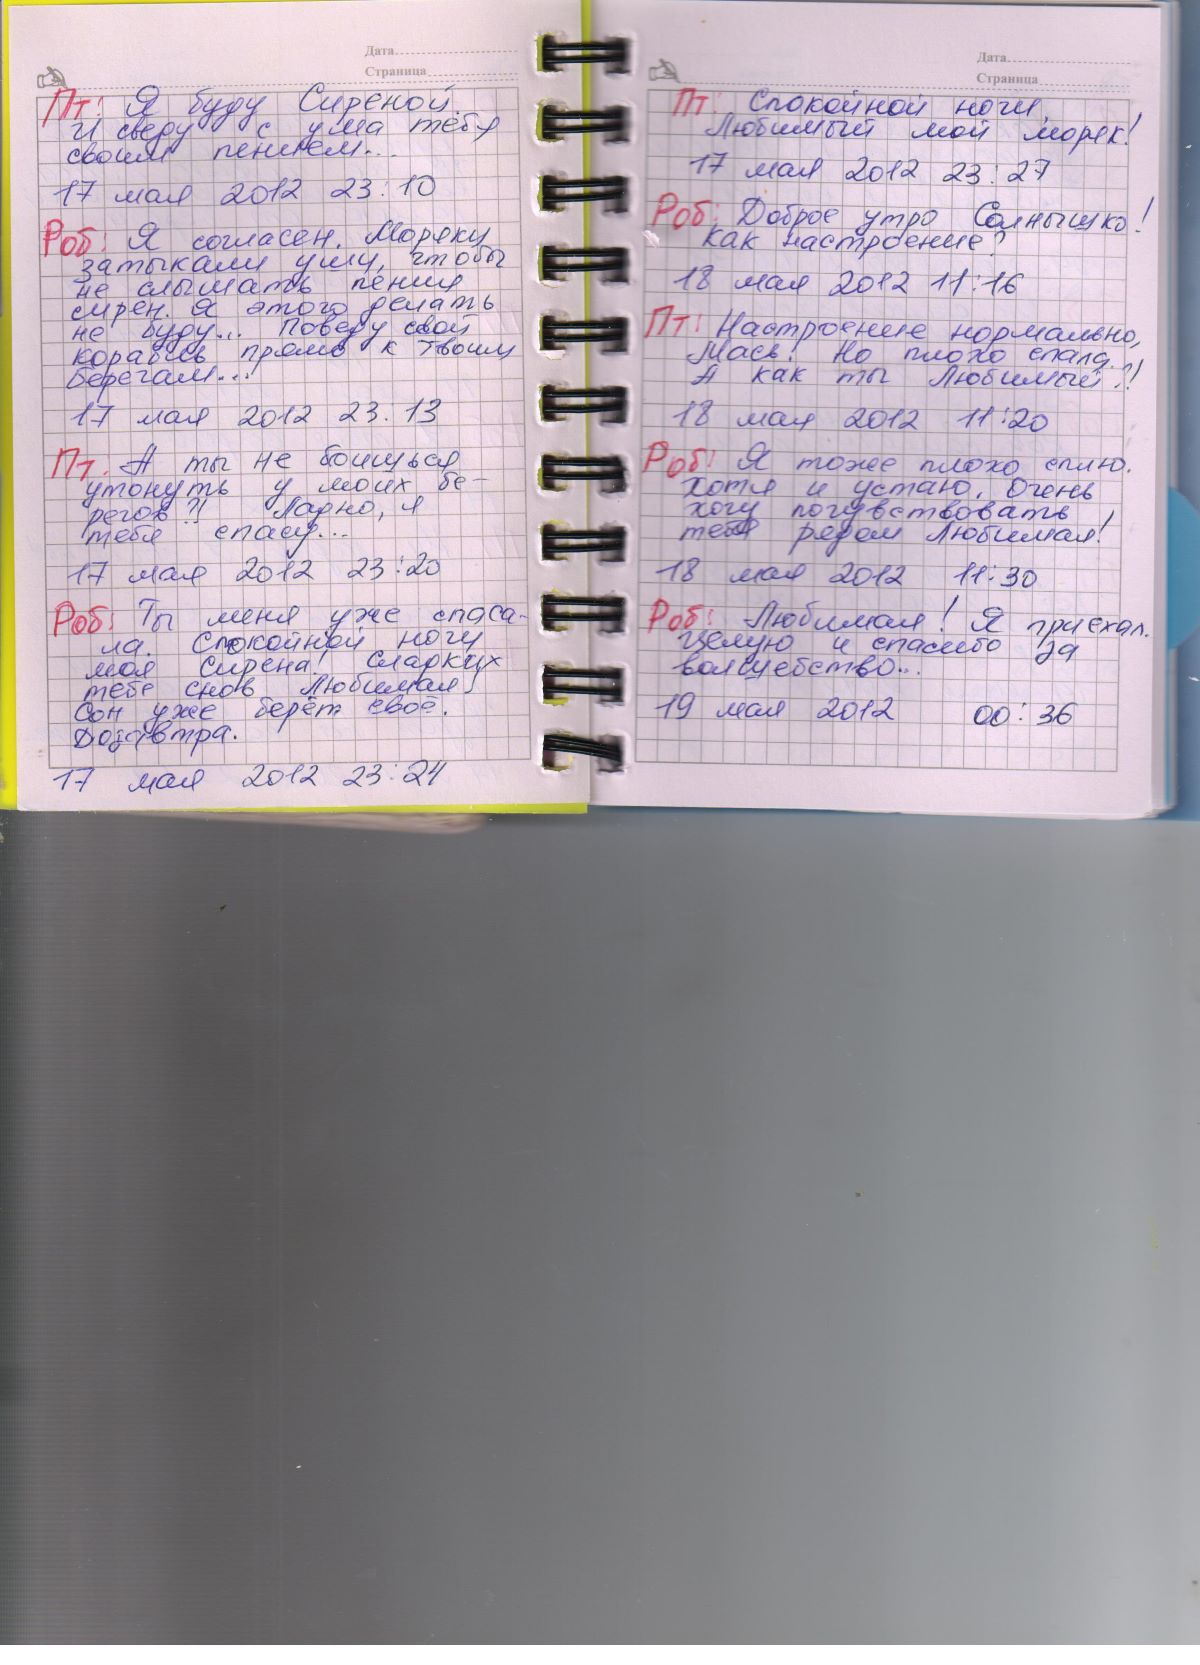 Дата
Страница
Пт: Я буду Сиреной.
И сведу с ума тебя
своим пением...
17 мая 2012 23:10
Роб: Я согласен. Моряку
затыкали уши, чтобы
не слышать пения
сирен. Я этого делать
не буду... Поверу свой
корабль прямо к твоим
берегам...
17 мая 2012 23.13
Пт. А ты не боишься
утонуть у моих бе-
регов?! Ладно, я
тебя спасу...
17 мая 2012 23:20
Роб: Ты меня уже спаса-
ла. Спокойной ночи
моя Сирена! Сладких
тебе снов Любимая
Сон уже берёт своё.
Дозавтра.
17 мая 2012 23:24
Дата
Страница
Пт: Спокойной ночи,
Любимый мой моряк!
17 мая 2012 23:27
Роб: Доброе утро Солнышко!
Как настроение?
18 мая 2012 11:16
Пт: Настроение нормально,
Мась! Но плохо спала.
А как ты Любимый?!
18 мая 2012 11:20
Роб: Я тоже плохо сплю.
Хотя и устаю. Очень
хочу почувствовать
тебя рядом Любимая!
18 мая 2012 11:30
Роб: Любимая! Я приехал.
Целую и спасибо за
волшебство...
19 мая 2012 00:36